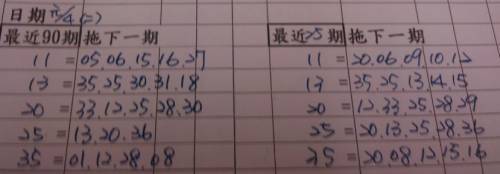 日期 25/4 (二)
最近90期 拖下一期
11 = 05.06.15.16.27
13 = 35.25.30.31.18
20 = 33.12.25.28.30
25 = 13.20.36
35 = 01.12.28.08
最近25期 拖下一期
11 = 20.06.09.10.12
13 = 35.25.13.14.15
20 = 12.33.25.28.29
25 = 20.13.25.28.36
35 = 20.08.12.15.16